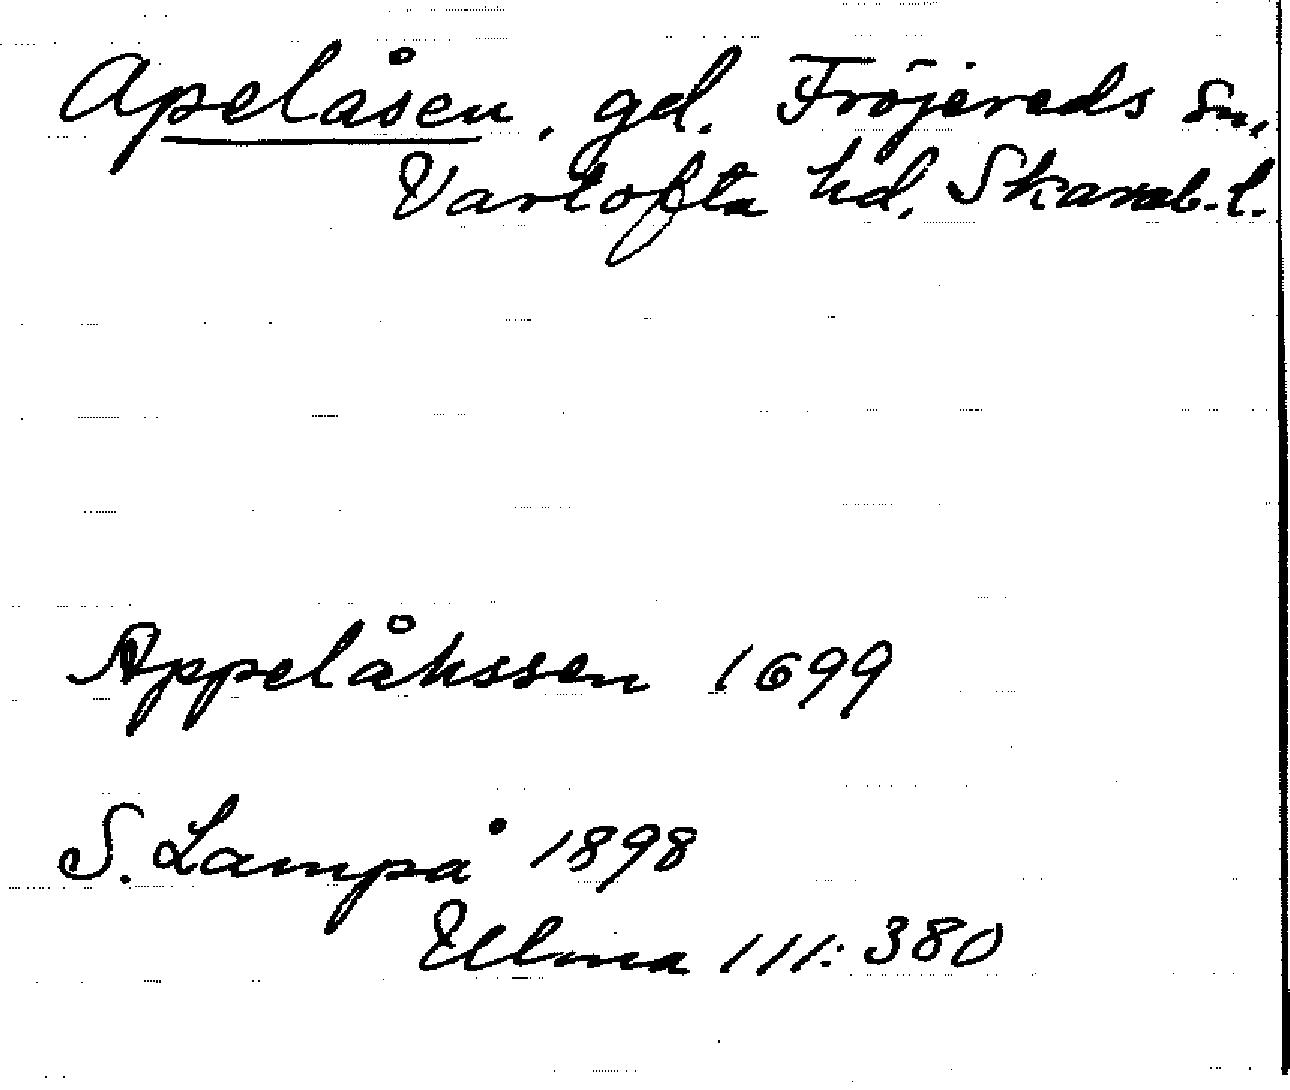 Apelåsen, gd. Fröjereds sn,
Vartofta hd, Skarab. l.
Appelåhssen 1699
S. Lampa 1898
Ulma 111:380